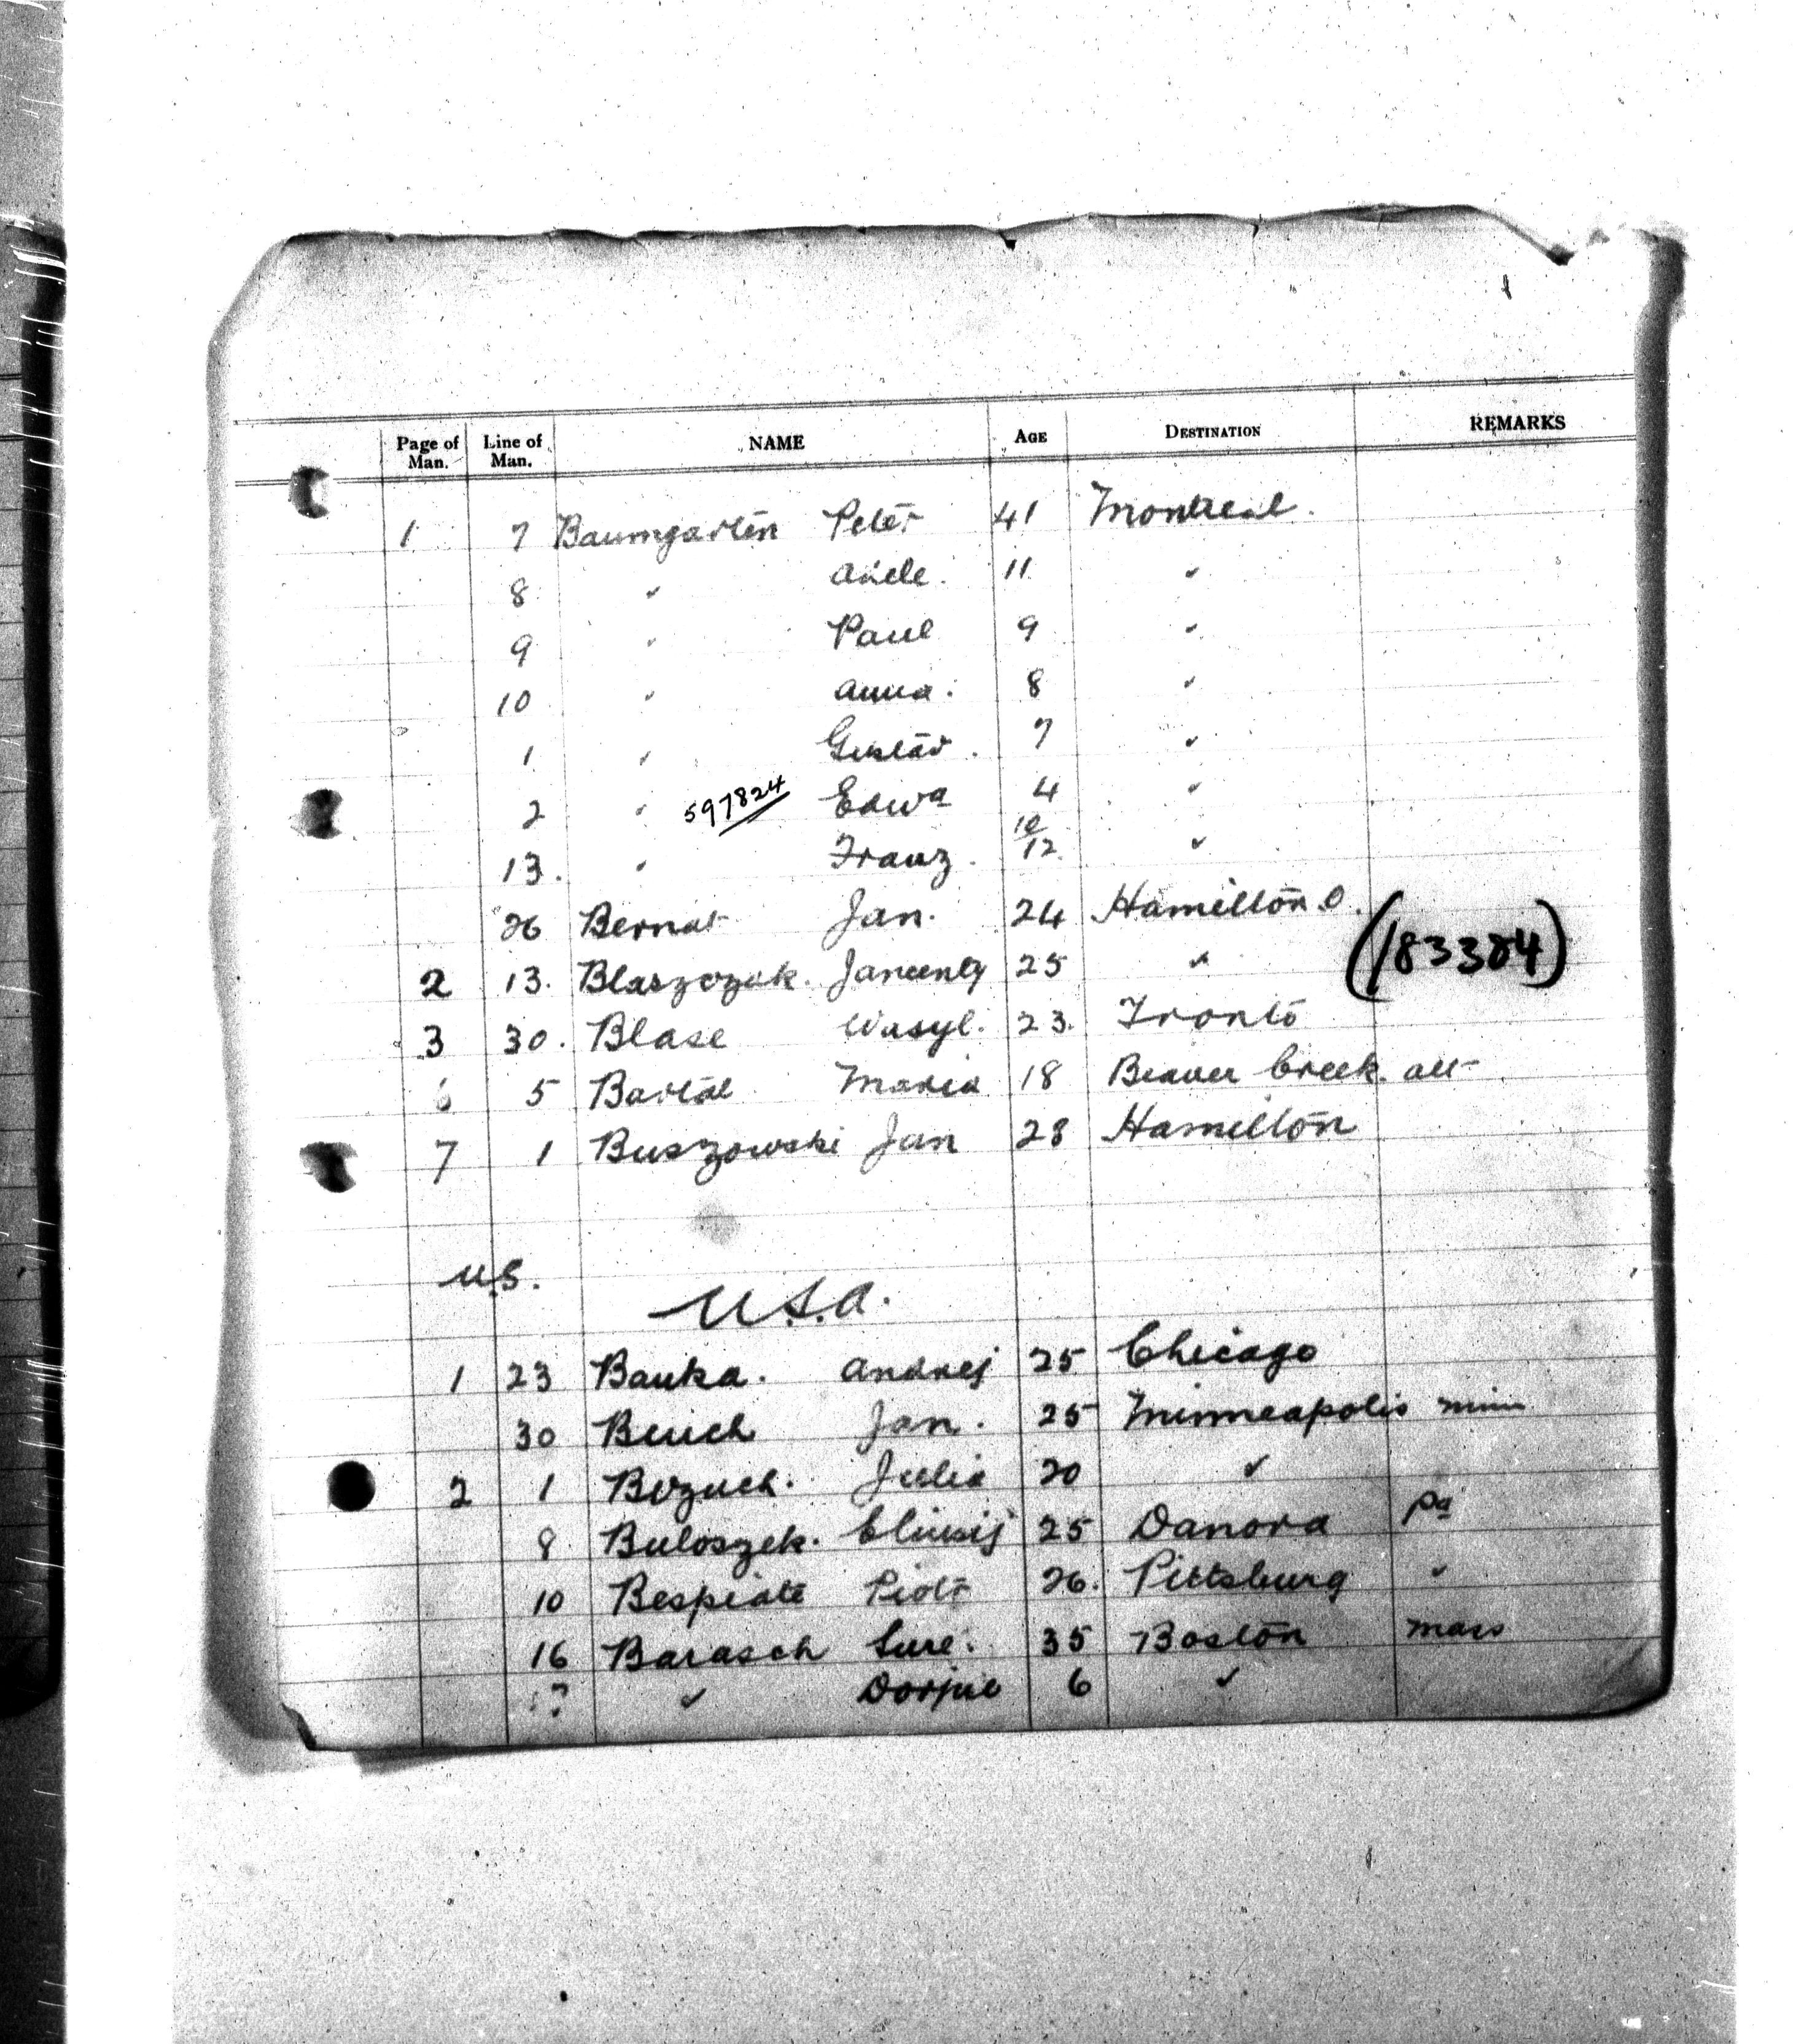 Page of Man. Line of Man. NAME AGE DESTINATION REMARKS
1 7 Baumgarten Peter 41 Montreal.
8 " Adele. 11 "
9 " Paul 9 "
10 " Anna. 8 "
1 " Gustav. 7 "
2 " 597824 Edwa 4 "
13. " Franz. 10/12. "
26 Bernat Jan. 24 Hamilton. O.
2 13. Blaszczak. 25 " (183384)
3 30. Blase Wasyl. 23. Tronto
5 Maria 18 Beaver Creek.
7 1 Buszowski Jan 28 Hamilton
U.S.
U.S.A.
1 23 Andrej 25 Chicago
30 Jan. 25 Minneapolis Minn
2 1 Julia 20 "
8 Buloszek. 25 Danora Pa
10 Piotr 26. Pittsburg "
16 Barasch Sure. 35 Boston Mass
" 6 "